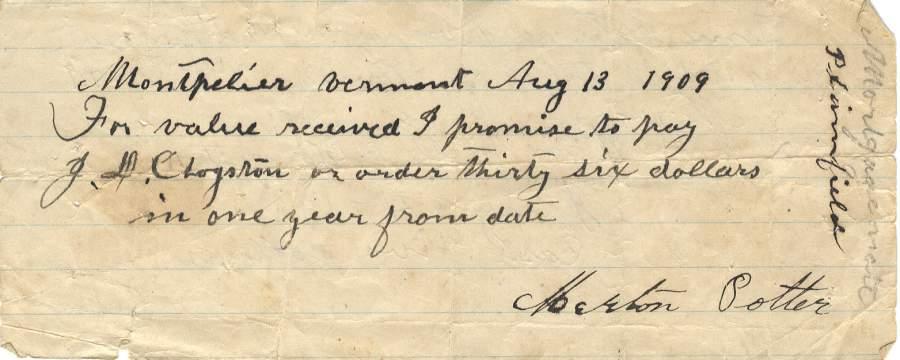 Montpelier vermont Aug 13 1909
For value received I promise to pay
J. D. Clogston or order thirty six dollars
in one year from date
Merton Potter
Plainfield